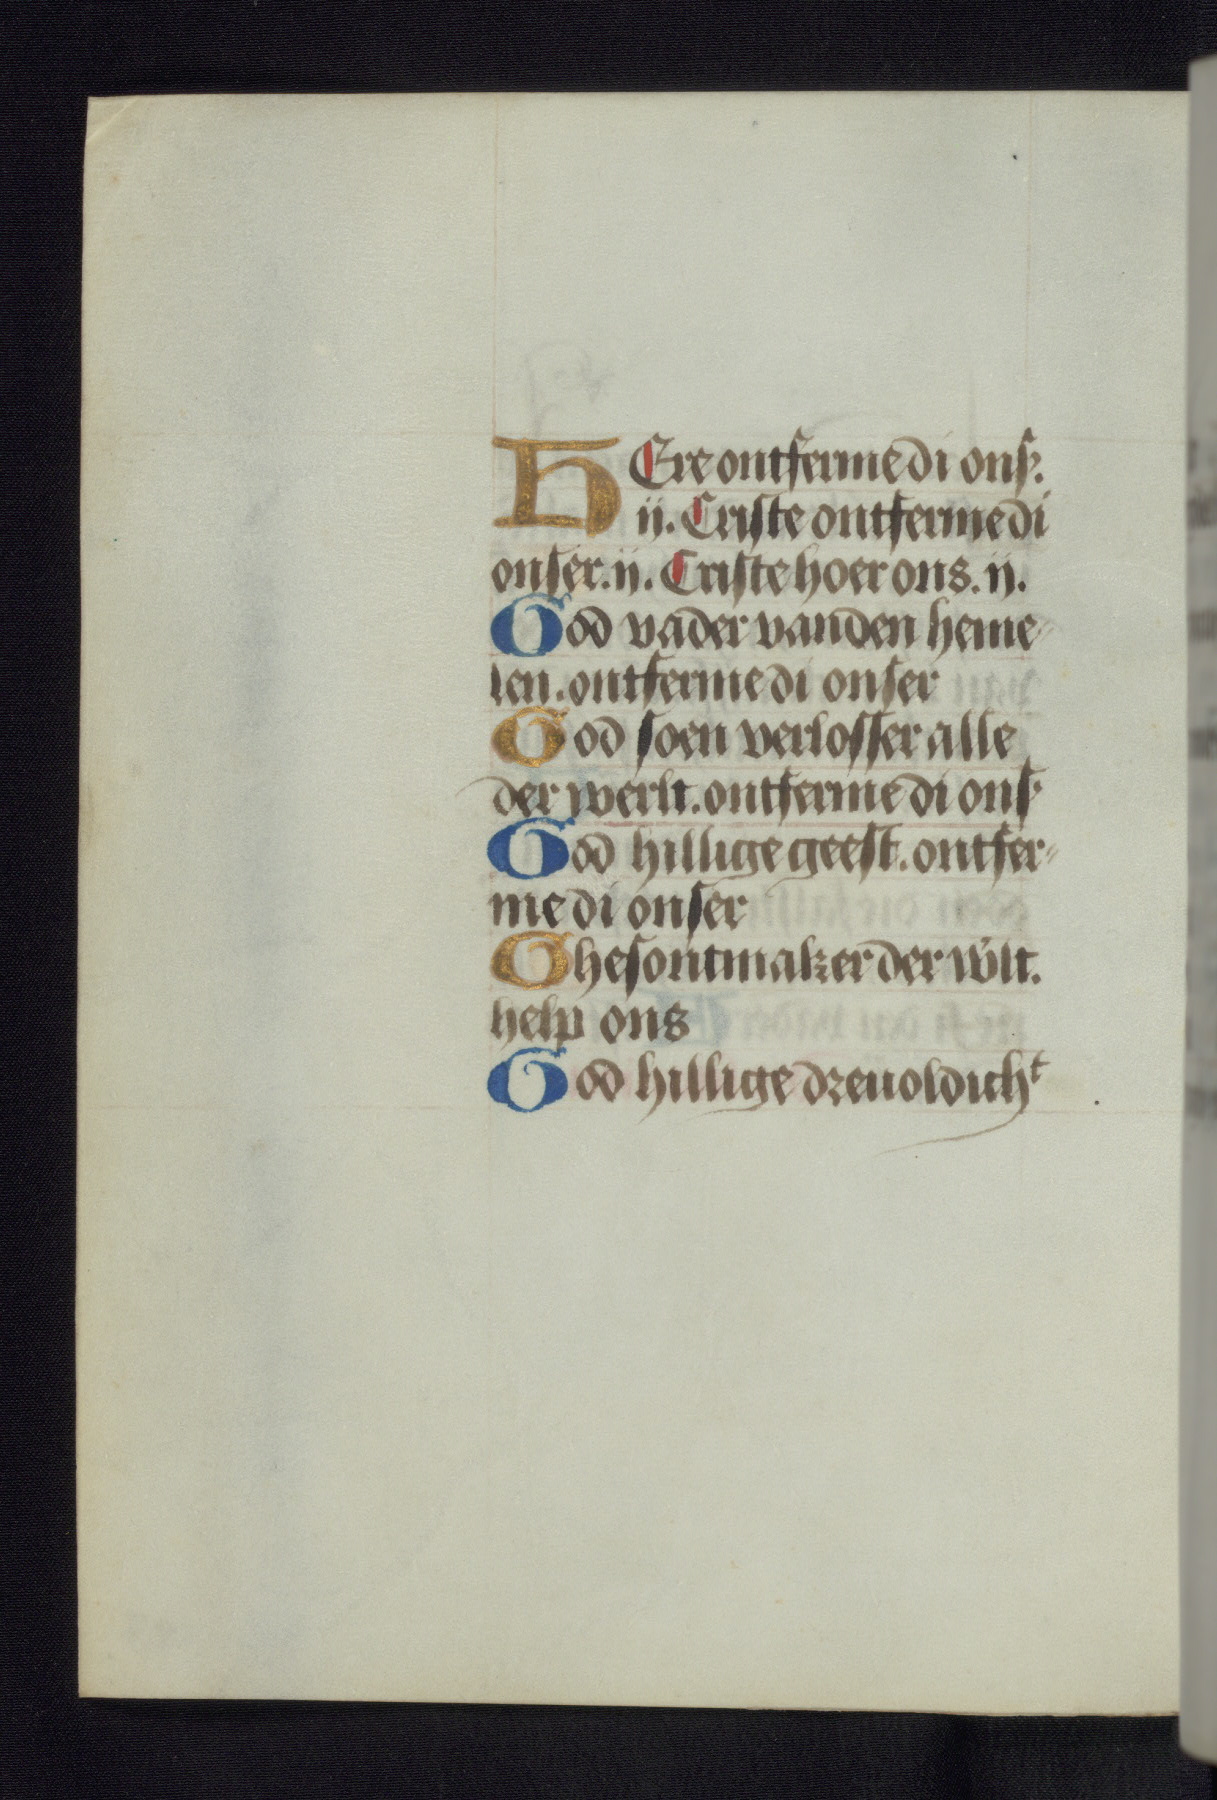 HEre ontferme di onſ.
ij. Criſte ontferme di
onſer. ij. Criſte hoer ons. ij.
God vader vanden heme
len. ontferme di onſer
God ſoen verloſſer alle
der werlt. ontferme di onſ
God hillige geeſt. ontfer
me di onſer
Gheſontmaker der wlt.
help ons
God hillige dreuoldicht